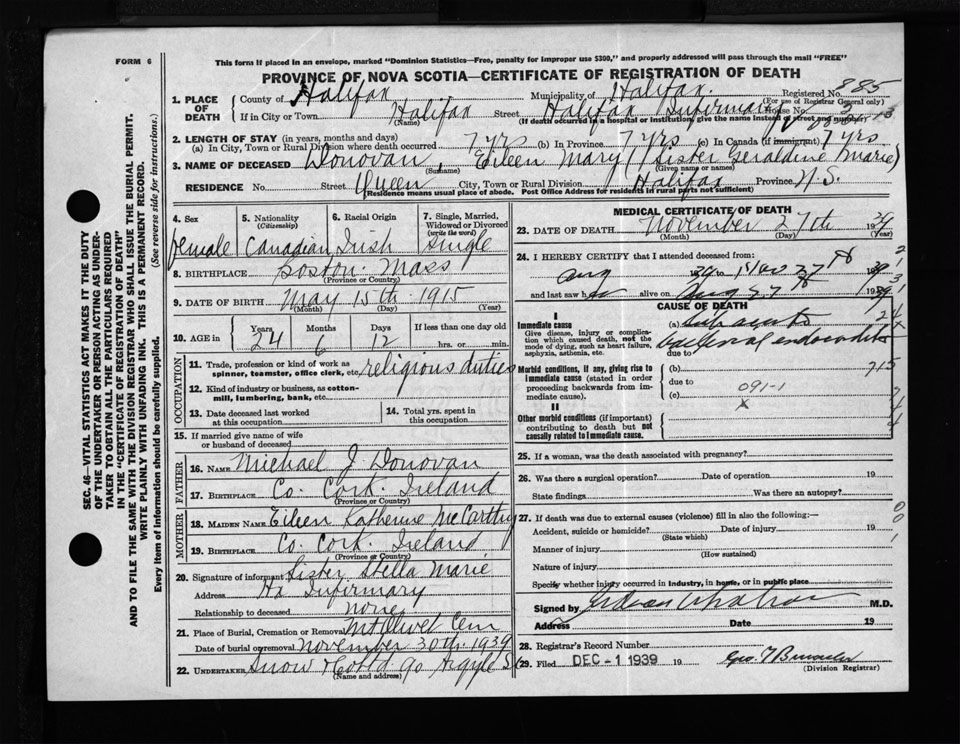 FORM 6
This form if placed in an envelope, marked "Dominion Statistics—Free, penalty for improper use $300," and properly addressed will pass through the mail "FREE"
PROVINCE OF NOVA SCOTIA—CERTIFICATE OF REGISTRATION OF DEATH
1. PLACE OF DEATH
County of Halifax Municipality of Halifax Registered No. 885
(For use of Registrar General only)
If in City or Town Halifax Street Halifax Infirmary House No.
(Name) (If death occurred in a hospital or institution, give the name instead of street and number)
2. LENGTH OF STAY (in years, months and days)
(a) In City, Town or Rural Division where death occurred 7 yrs (b) In Province 7 yrs (c) In Canada (if immigrant) 7 yrs
3. NAME OF DECEASED Donovan, Eileen Mary (Sister Geraldine Marie)
(Surname) (Given name or names)
RESIDENCE No. Street Queen City, Town or Rural Division Halifax Province N.S.
(Residence means usual place of abode. Post Office Address for residents in rural parts not sufficient)
4. Sex female
5. Nationality (Citizenship) Canadian
6. Racial Origin Irish
7. Single, Married, Widowed or Divorced (write the word) single
8. BIRTHPLACE Boston Mass
(Province or Country)
9. DATE OF BIRTH May 15th 1915
(Month) (Day) (Year)
10. AGE in Years 24 Months 6 Days 12 If less than one day old hrs. or min.
OCCUPATION
11. Trade, profession or kind of work as spinner, teamster, office clerk, etc. religious duties
12. Kind of industry or business, as cotton-mill, lumbering, bank, etc.
13. Date deceased last worked at this occupation
14. Total yrs. spent in this occupation
15. If married give name of wife or husband of deceased
FATHER
16. NAME Michael J Donovan
17. BIRTHPLACE Co. Cork Ireland
(Province or Country)
MOTHER
18. MAIDEN NAME Eileen Katherine McCarthy
19. BIRTHPLACE Co. Cork Ireland
(Province or Country)
20. Signature of informant Sister Stella Marie
Address Hx Infirmary
Relationship to deceased none
21. Place of Burial, Cremation or Removal Mt Olivet Cem
Date of burial or removal November 30th 1939
22. UNDERTAKER Snow & Co Ltd 90 Argyle St
(Name and address)
MEDICAL CERTIFICATE OF DEATH
23. DATE OF DEATH November 27th 1939
(Month) (Day) (Year)
24. I HEREBY CERTIFY that I attended deceased from:
Aug 1939 to Nov 27th 1939
and last saw h alive on 27th 1939
CAUSE OF DEATH
I
Immediate cause
Give disease, injury or complication which caused death, not the mode of dying, such as heart failure, asphyxia, asthenia, etc.
(a) Subacute
bacterial endocarditis
due to
Morbid conditions, if any, giving rise to immediate cause (stated in order proceeding backwards from immediate cause).
(b)
due to 091-1
(c) x
II
Other morbid conditions (if important) contributing to death but not causally related to immediate cause.
25. If a woman, was the death associated with pregnancy?
26. Was there a surgical operation? Date of operation 19
State findings Was there an autopsy?
27. If death was due to external causes (violence) fill in also the following:
Accident, suicide or homicide? Date of injury 19
(State which)
Manner of injury
(How sustained)
Nature of injury
Specify whether injury occurred in industry, in home, or in public place
Signed by M.D.
Address Date 19
28. Registrar's Record Number
29. Filed DEC -1 1939 19
(Division Registrar)
SEC. 46—VITAL STATISTICS ACT MAKES IT THE DUTY
OF THE UNDERTAKER OR PERSON ACTING AS UNDER-
TAKER TO OBTAIN ALL THE PARTICULARS REQUIRED
IN THE "CERTIFICATE OF REGISTRATION OF DEATH"
AND TO FILE THE SAME WITH THE DIVISION REGISTRAR WHO SHALL ISSUE THE BURIAL PERMIT.
WRITE PLAINLY WITH UNFADING INK. THIS IS A PERMANENT RECORD.
Every item of information should be carefully supplied. (See reverse side for instructions.)